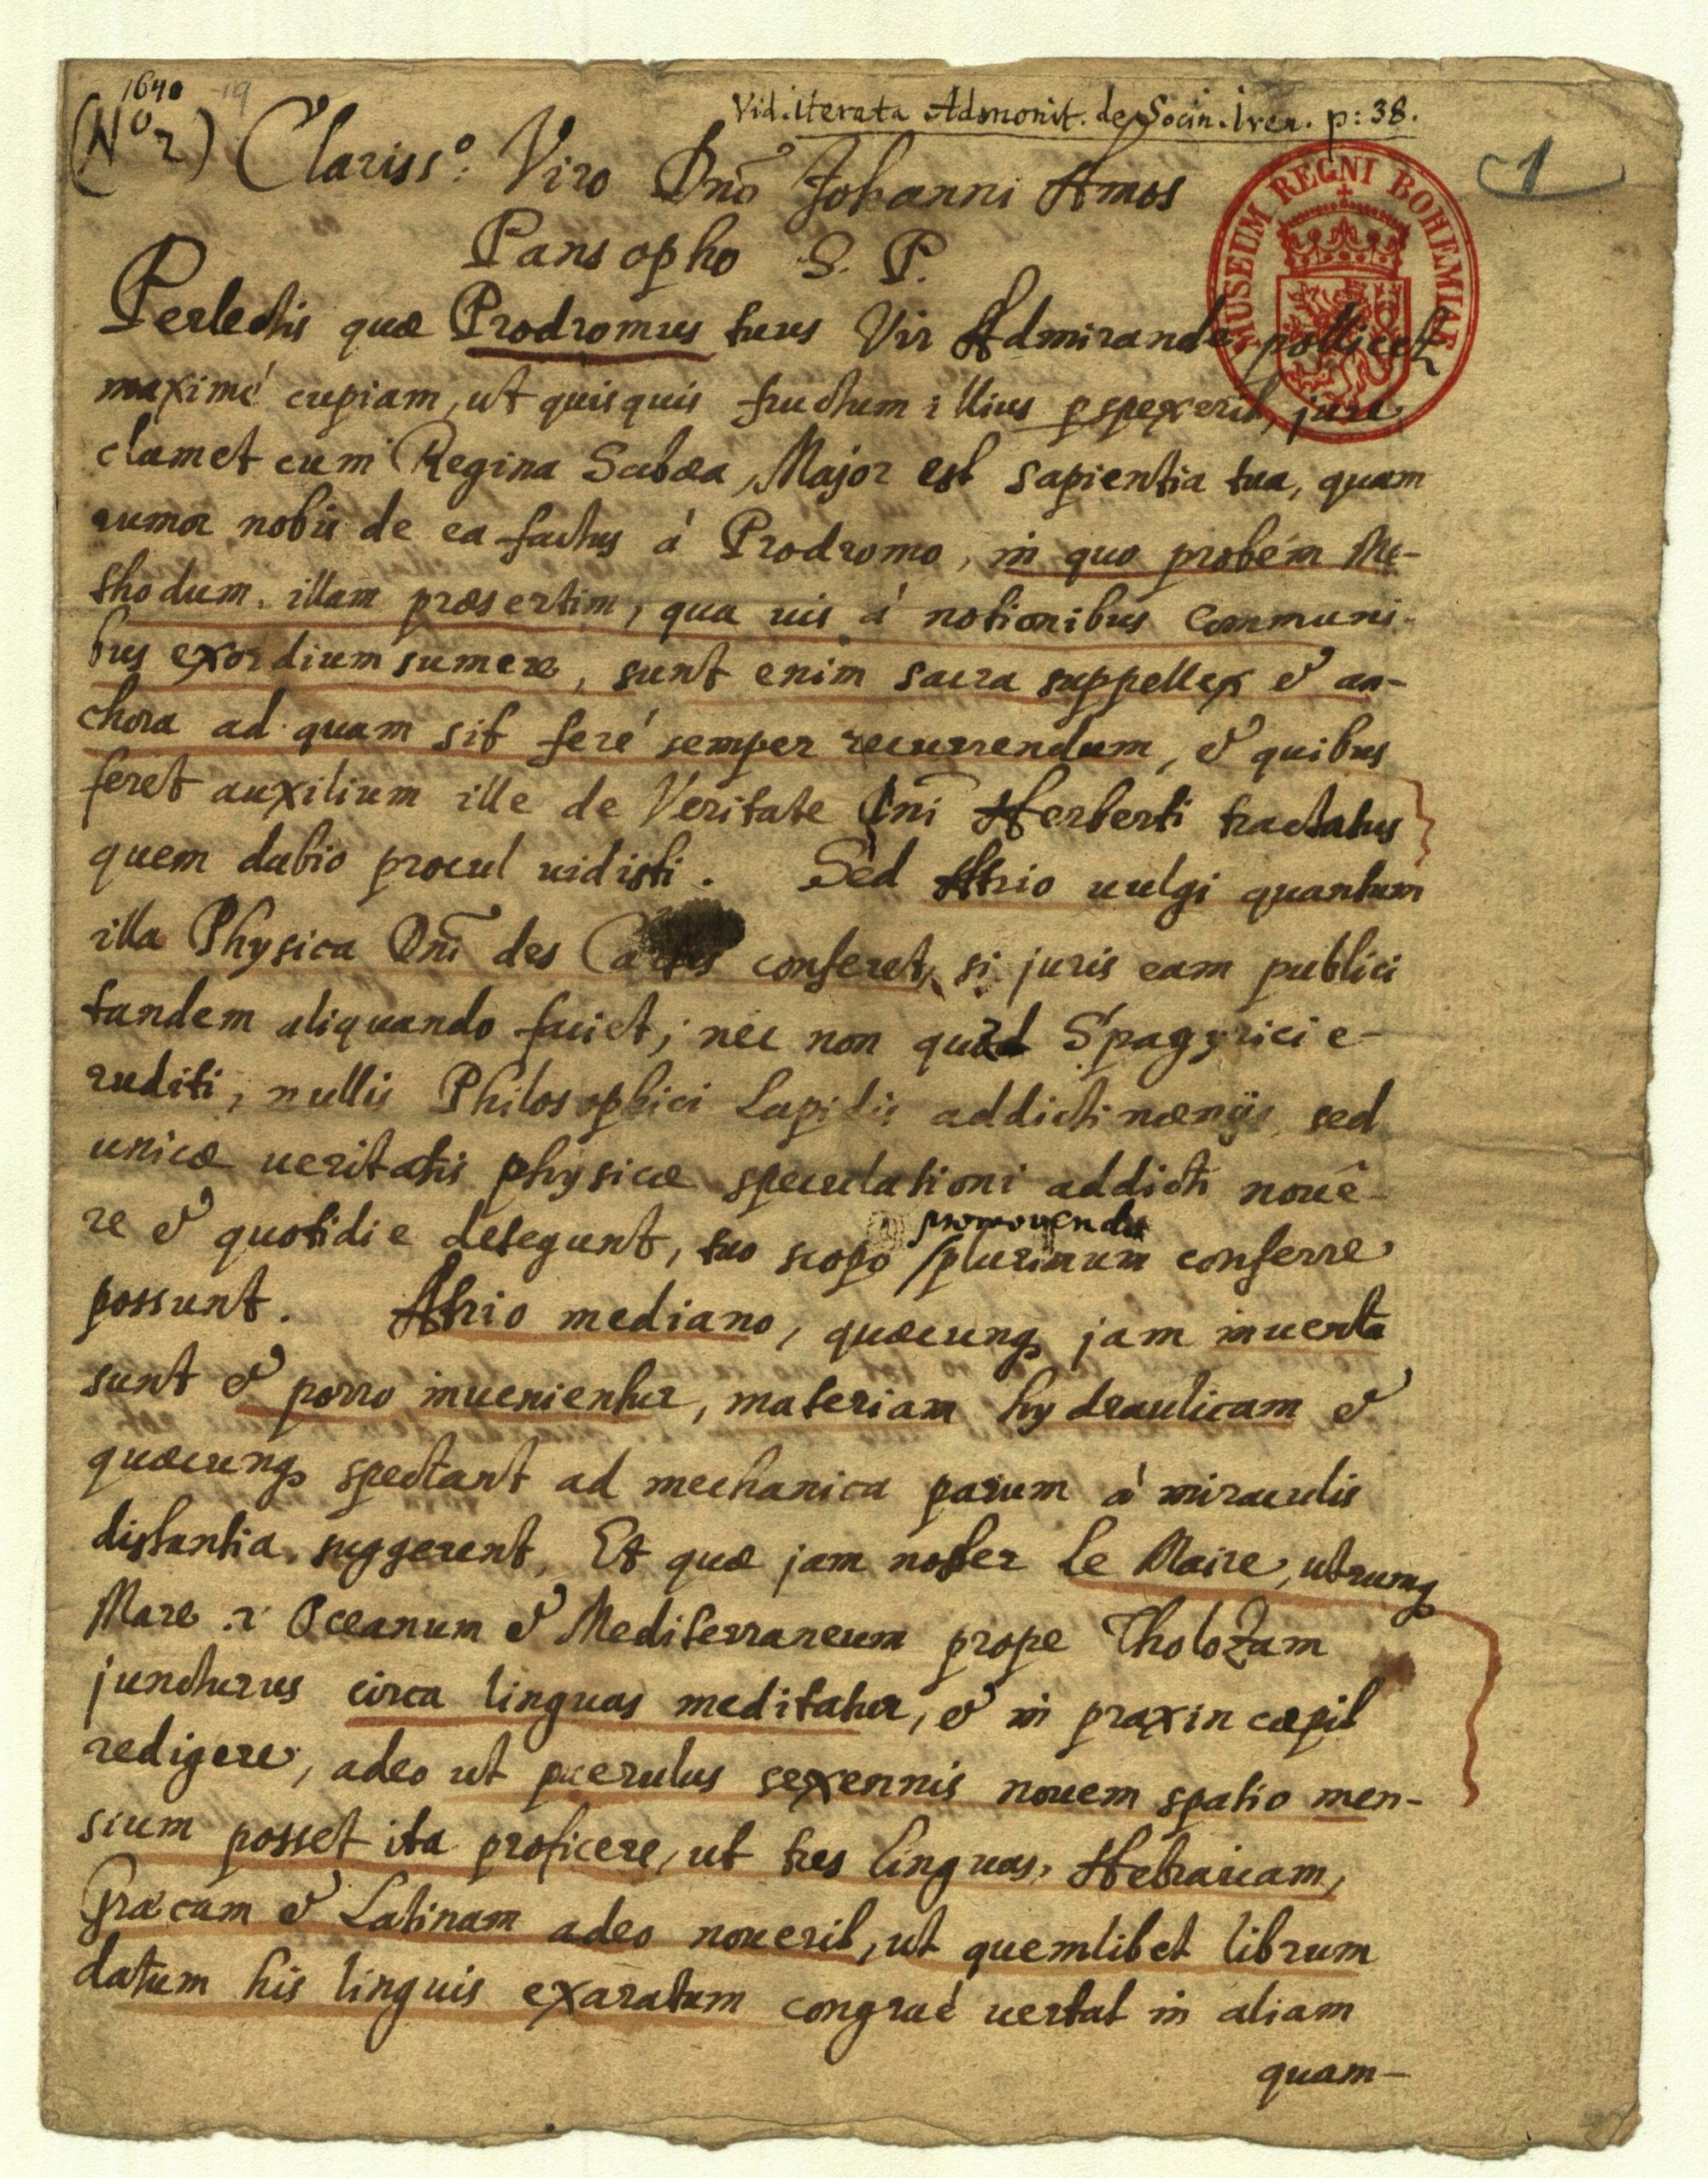 1640 19
(No 2)
Vid. iterata Admonit. de Socin. Iren. p: 38.
1
Clarisso: Viro Dno Johanni Amos
Pansopho S. P.
MUSEUM REGNI BOHEMIAE
Perlectis quæ Prodromus tuus Vir Admirande pollicet
maximé cupiam, ut quisquis fructum illius pspexerit, jure
clamet cum Regina Sabæa, Major est sapientia tua, quam
rumor nobis de ea factus á Prodromo, in quo probem Me-
thodum, illam præsertim, qua vis á notionibus communi-
bus exordium sumere, sunt enim sacra suppellex & an-
chora ad quam sit feré semper recurrendum, & quibus
feret auxilium ille de Veritate Dni Herberti tractatus
quem dubio procul vidisti. Sed Atrio vulgi quantum
illa Physica Dni des Cartes conferet, si juris eam publici
tandem aliquando faciet; nec non quod Spagyrici e-
ruditi, nullis Philosophici Lapidis addicti næniis, sed
unicæ veritatis physicæ speculationi addicti novê-
re & quotidie detegunt, tuo scopo /plurimum conferre
promovendo
possunt. Atrio mediano, quæcunq jam inventa
sunt & porro invenientur, materiam hydraulicam &
quæcunq spectant ad mechanica parum á miraculis
distantia, suggerent. Et quæ jam noster le Maire, utrumq
Mare .i. Oceanum & Mediterraneum prope Tholozam
juncturus circa linguas meditatur, & in praxin cœpit
redigere, adeo ut puerulus sexennis novem spatio men-
sium posset ita proficere, ut tres linguas, Hebraicam,
Græcam & Latinam adeo noverit, ut quemlibet librum
datum his linguis exaratum congrué vertat in aliam
quam-